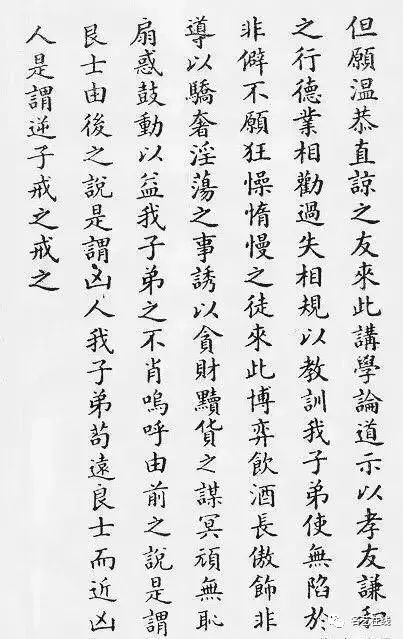 但願温恭直諒之友來此講學論道示以孝友謙和
之行德業相勸過失相規以教訓我子弟使無陷於
非僻不願狂懆惰慢之徒來此博弈飲酒長傲飾非
導以驕奢淫蕩之事誘以貪財黷貨之謀冥頑無恥
扇惑鼓動以益我子弟之不肖嗚呼由前之說是謂
良士由後之說是謂凶人我子弟苟遠良士而近凶
人是謂逆子戒之戒之